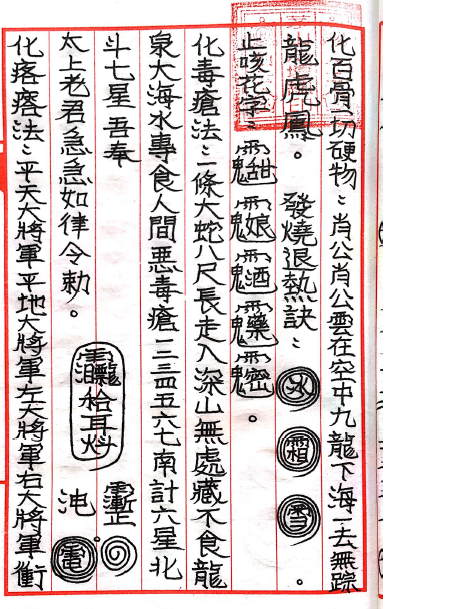 化百骨一切硬物：肖公肖公雲在空中九龍下海一去無踪
龍虎鳳。發燒退熱訣：冰霜雪。
止咳花字：
化毒瘡法：二條大蛇八尺長走入深山無處藏不食龍
泉大海水專食人間惡毒瘡一二三四五六七南計六星北
斗七星吾奉
太上老君急急如律令勅。
化痞瘩法：平天大將軍平地大將軍左大將軍右大將軍衝